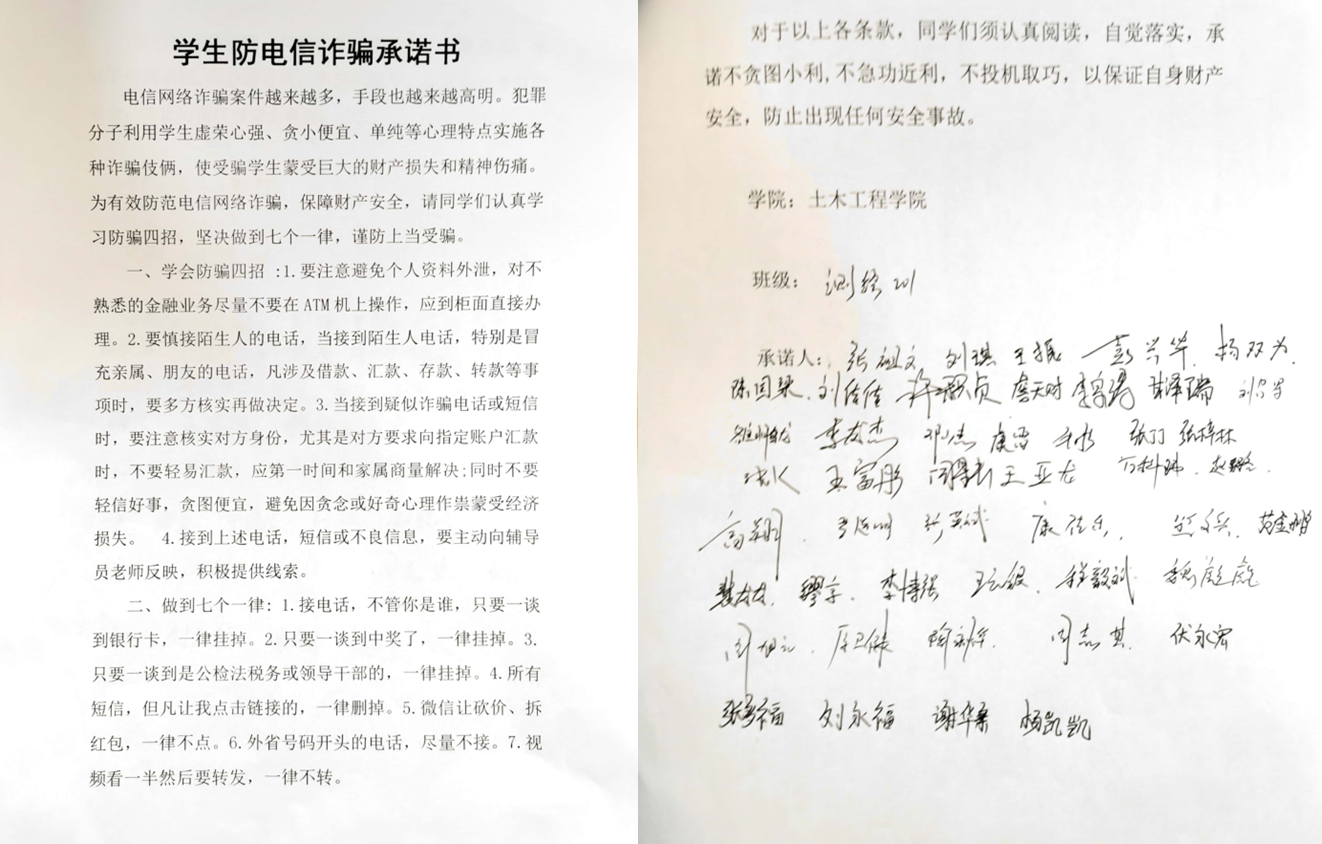 学生防电信诈骗承诺书
电信网络诈骗案件越来越多，手段也越来越高明。犯罪
分子利用学生虚荣心强、贪小便宜、单纯等心理特点实施各
种诈骗伎俩，使受骗学生蒙受巨大的财产损失和精神伤痛。
为有效防范电信网络诈骗，保障财产安全，请同学们认真学
习防骗四招，坚决做到七个一律，谨防上当受骗。
一、学会防骗四招 :1.要注意避免个人资料外泄，对不
熟悉的金融业务尽量不要在 ATM 机上操作，应到柜面直接办
理。2.要慎接陌生人的电话，当接到陌生人电话，特别是冒
充亲属、朋友的电话，凡涉及借款、汇款、存款、转款等事
项时，要多方核实再做决定。3.当接到疑似诈骗电话或短信
时，要注意核实对方身份，尤其是对方要求向指定账户汇款
时，不要轻易汇款，应第一时间和家属商量解决;同时不要
轻信好事，贪图便宜，避免因贪念或好奇心理作祟蒙受经济
损失。 4.接到上述电话，短信或不良信息，要主动向辅导
员老师反映，积极提供线索。
二、做到七个一律: 1.接电话，不管你是谁，只要一谈
到银行卡，一律挂掉。2.只要一谈到中奖了，一律挂掉。3.
只要一谈到是公检法税务或领导干部的，一律挂掉。4.所有
短信，但凡让我点击链接的，一律删掉。5.微信让砍价、拆
红包，一律不点。6.外省号码开头的电话，尽量不接。7.视
频看一半然后要转发，一律不转。
对于以上各条款，同学们须认真阅读，自觉落实，承
诺不贪图小利,不急功近利，不投机取巧，以保证自身财产
安全，防止出现任何安全事故。
学院: 土木工程学院
班级: 测绘 211
承诺人: 张祖文 刘琪 王振 彭兴华 杨双为
陈国梁 刘佳佳 詹天时
李龙杰 邓杰 康哲 张丁 张梓林
王富彤 王亚龙
高翔 康佳乐
缪宇 李博强 程毅斌
周旭元 周志其 伏永宏
刘永福 谢华 杨凯凯